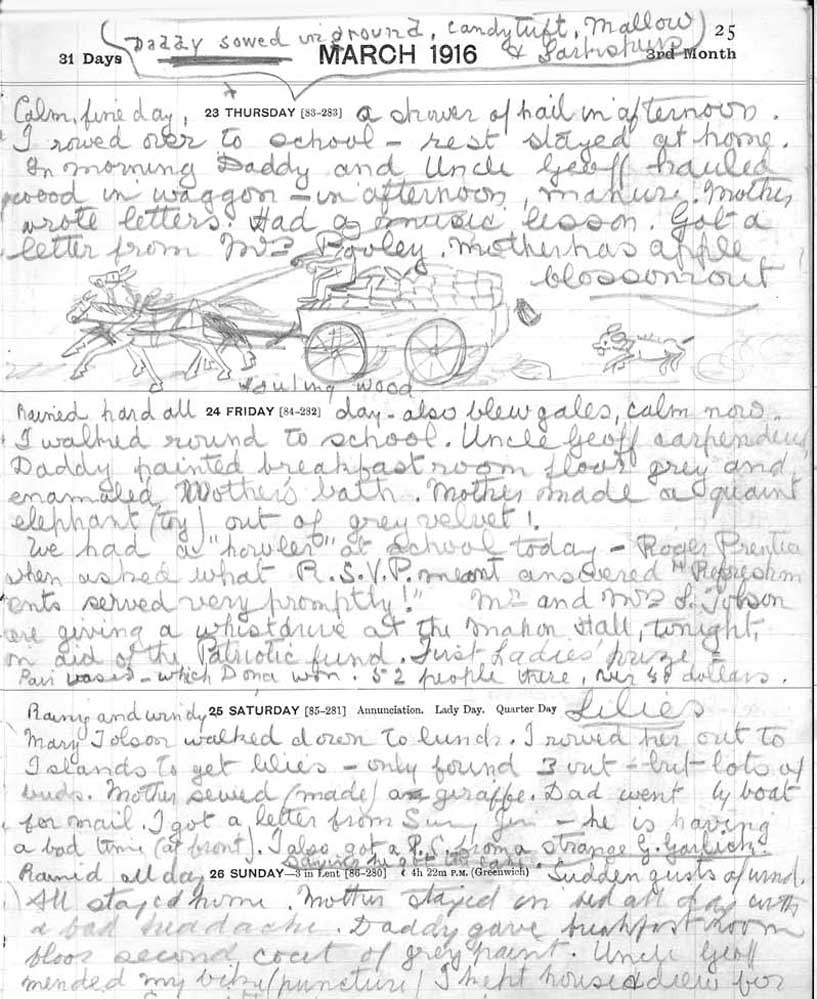 Daddy sowed in ground, candytuft, Mallow
& Larkspur
25
31 Days MARCH 1916 3rd Month
Calm, fine day, 23 THURSDAY [83-283] a shower of hail in afternoon.
I rowed over to school - rest stayed at home.
In morning Daddy and Uncle Geoff hauled
wood in waggon - in afternoon, manure. Mother
wrote letters. Had a music lesson. Got a
letter from Mrs Pooley. Mother has apple
blossom out
Hauling wood
Rained hard all 24 FRIDAY [84-282] day - also blew gales, calm now.
I walked round to school. Uncle Geoff carpendered
Daddy painted breakfast room floor grey and
enamaled Mother's bath. Mother made a quaint
elephant (toy) out of grey velvet!
We had a "howler" at school today - Roger Prentice
when asked what R.S.V.P. meant answered "Refreshm
ents served very promptly!" Mr and Mrs S. Tolson
are giving a whist drive at the Mahon Hall, tonight,
in aid of the Patriotic fund. First Ladies' prize =
Pair vases - which Dona won. 52 people there, dollars.
Rainy and windy 25 SATURDAY [85-281] Annunciation. Lady Day. Quarter Day Lilies
Mary Tolson walked down to lunch. I rowed her out to
Islands to get lilies - only found 3 out - but lots of
buds. Mother sewed (made) a giraffe. Dad went by boat
for mail. I got a letter from Jim - he is having
a bad time (at front). I also got a P.C. from a strange G. Garlick.
saying he got the cake.
Rained all day 26 SUNDAY—3 in Lent [86-280] ☾ 4h 22m P.M. (Greenwich) Sudden gusts of wind.
All stayed home. Mother stayed in bed all day with
a bad headache. Daddy gave breakfast room
floor second coat of grey paint. Uncle Geoff
mended my bike (puncture) I kept house & drew for